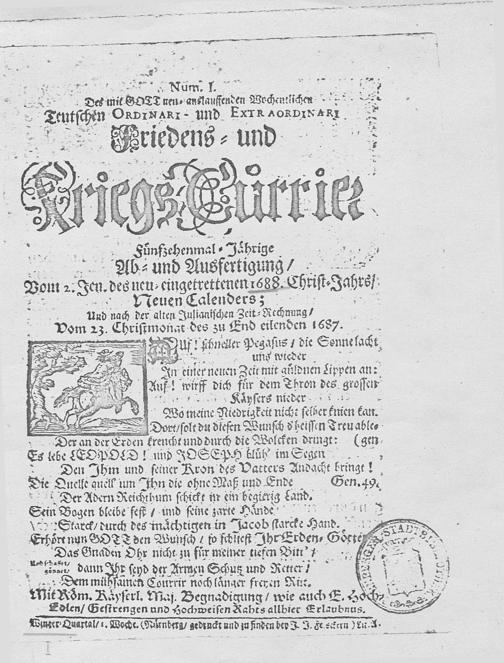 Num. I.
Des mit GOTT neu-anlauffenden Wochentlichen
Teutschen ORDINARI- und EXTRAORDINARI
Friedens- und
Kriegs-Currier
Fünfzehenmal-Jährige
Ab- und Ausfertigung/
Vom 2. Jen. des neu-eingetrettenen 1688. Christ-Jahrs/
Neuen Calenders;
Und nach der alten Julianischen Zeit-Rechnung/
Vom 23. Christmonat des zu End eilenden 1687.
AUf! schneller Pegasus/ die Sonne lacht
uns wieder
In einer neuen Zeit mit güldnen Lippen an:
Auf! wirff dich für dem Thron des grossen
Käysers nieder
Wo meine Niedrigkeit nicht selber knien kan.
Dort/ solt du diesen Wunsch d'heissen Treu ables-
Der an der Erden kreucht und durch die Wolcken dringt: (gen
Es lebe LEOPOLD! und JOSEPH blüh' im Segen
Den Ihm und seiner Kron des Vatters Andacht bringt!
Die Quelle quell' um Ihn die ohne Maß und Ende Gen. 49.
Der Adern Reichthum schickt in ein begierig Land.
Sein Bogen bleibe fest/ und seine zarte Hände
Starck/ durch des mächtigen in Jacob starcke Hand.
Erhört nun GOTT den Wunsch/ so schließt Ihr Erden-Götter
Das Gnaden Ohr nicht zu für meiner tiefen Bitt'/
dann Ihr seyd der Armen Schutz und Retter/
Dem mühsamen Courrir noch länger freyen Ritt.
Mit Röm. Käyserl. Maj. Begnadigung/ wie auch E. Hoch-
Edlen/ Gestrengen und Hochweisen Rahts allhier Erlaubnus.
Winter-Quartal/ 1. Woche. (Nürnberg/ gedruckt und zu finden bey J. J. Felseckern) Lit. A.
I